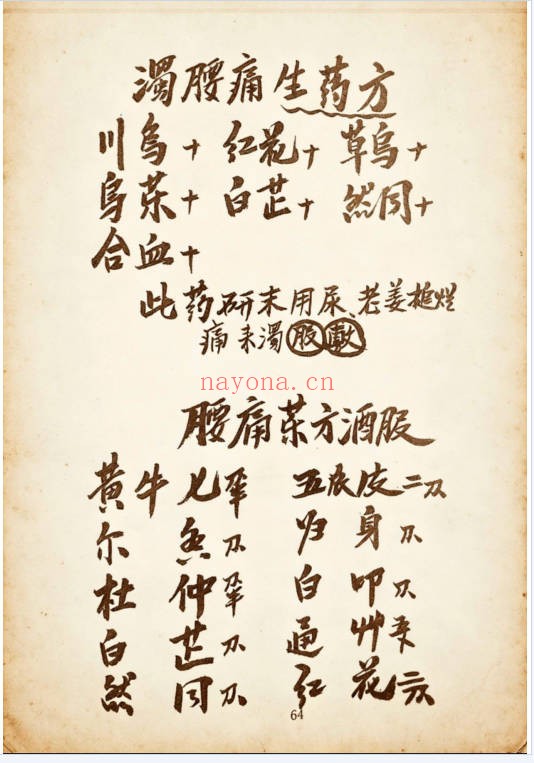 濁腰痛生药方
川乌十 红花十 草乌十
乌药十 白芷十 然同十
合血十
此药研末用尿、老姜槌烂
痛来濁服
nayona.cn
腰痛药方酒服
黄牛七 五加皮二刄
尔香刄 归身刄
杜仲 白叩刄
白芷刄 通草
然同刄 红花三刄
64